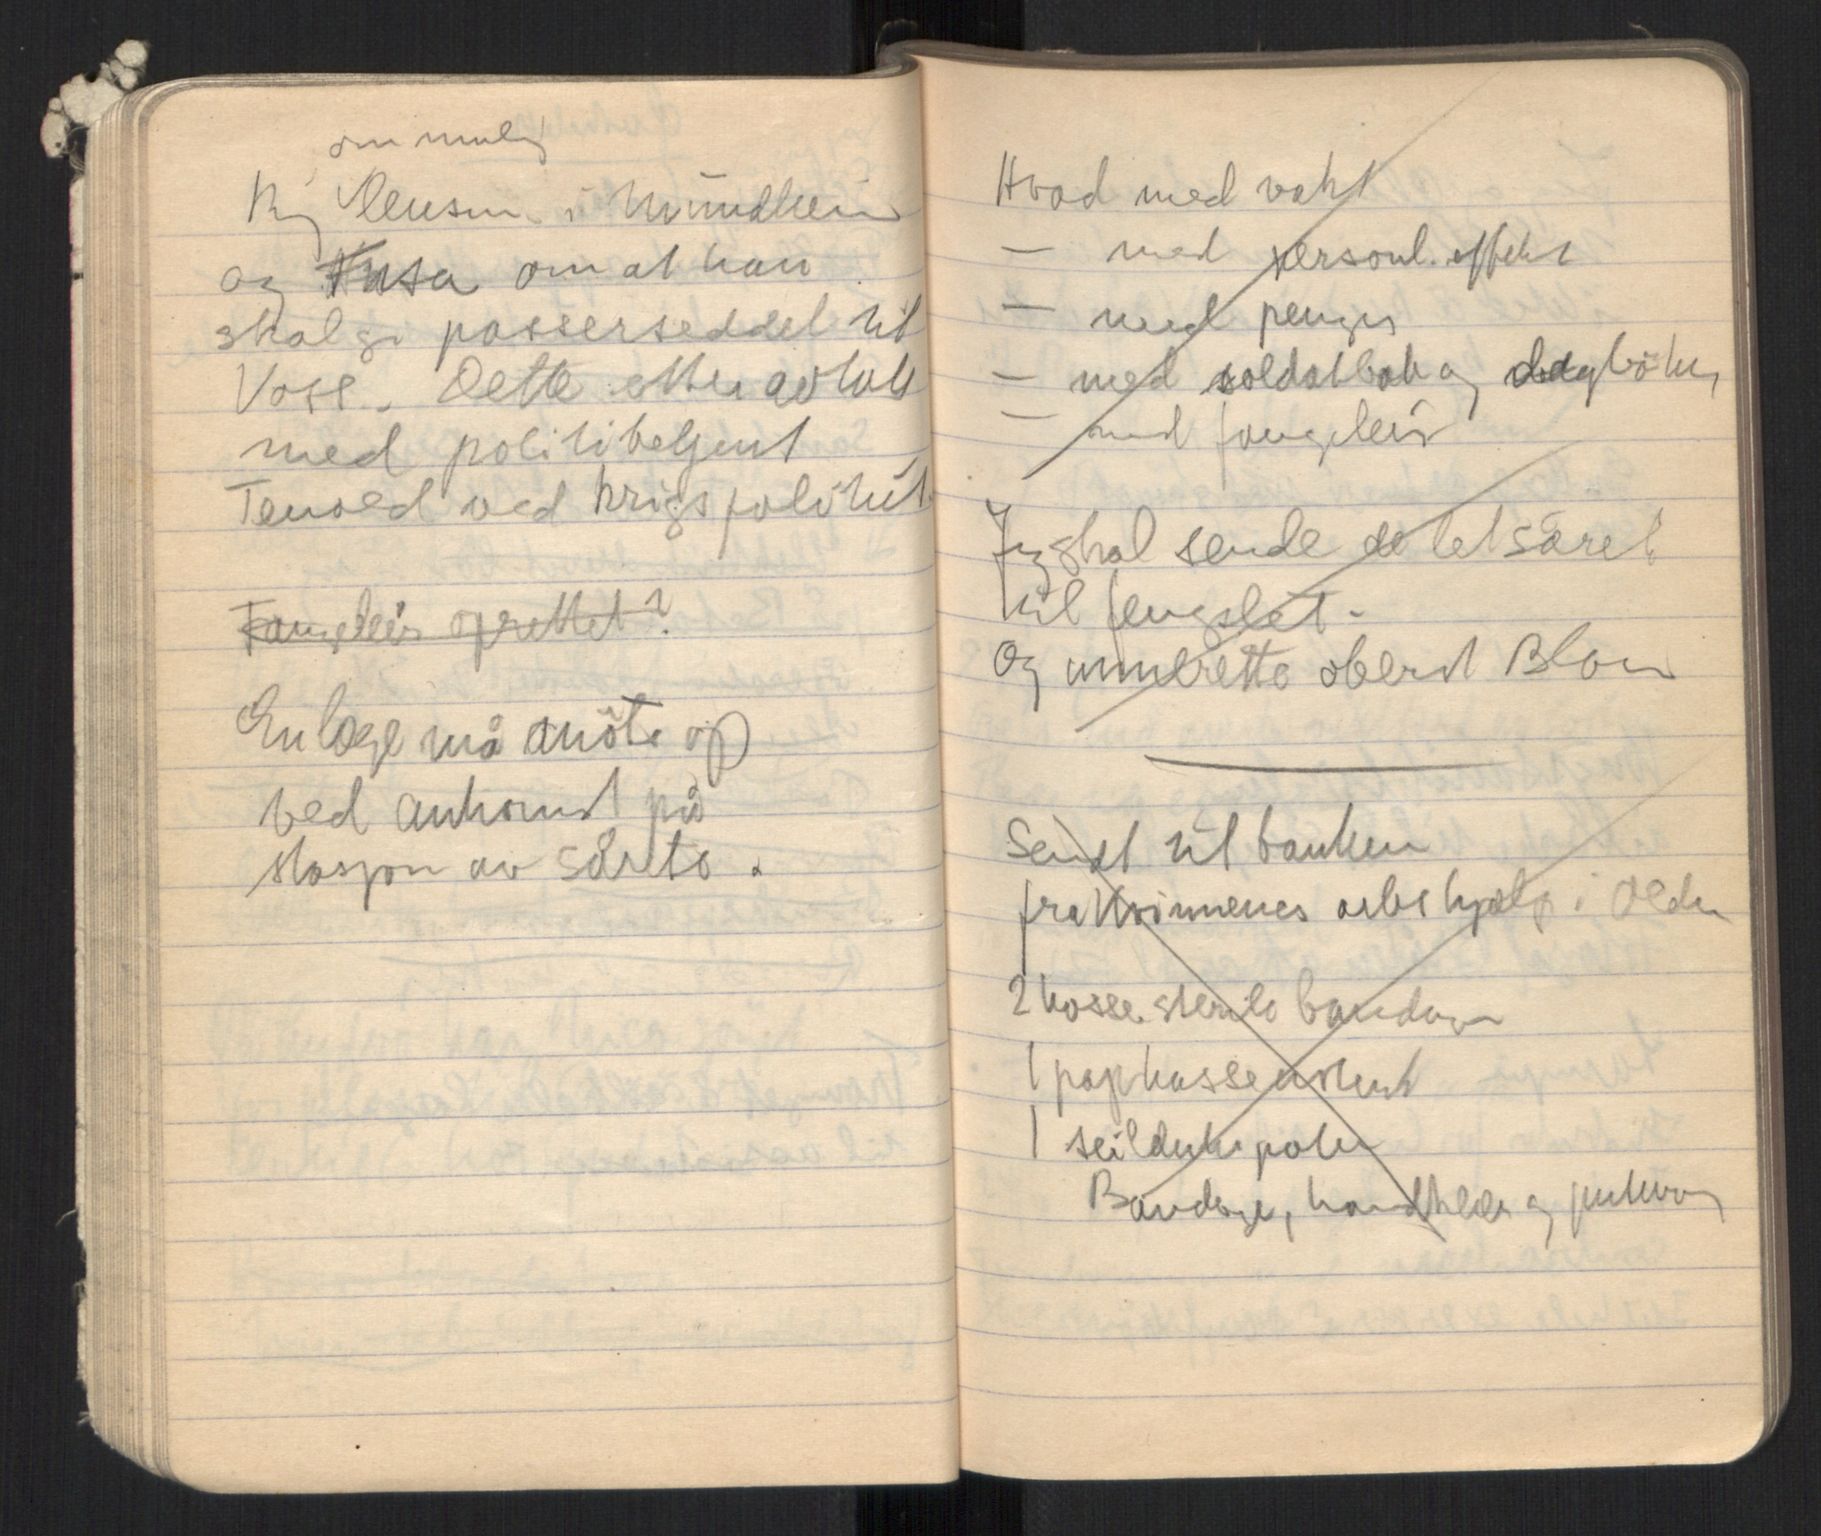 om mulig
Ring lensm. i Mundheim
og Fusa om at han
skal gi passerseddel til
Voss. Dette etter avtale
med politibetjent
Tenold ved krigspolitiet.
Fangeleir oprettet?
En læge må møte op
ved ankomst på
stasjon av sårete.
Hvad med vakt
— med personl. effekt
— med penger
— med soldatbok og dagbøker
— med fangeleir
Jeg skal sende de letsårete
til fengslet.
Og underrette oberst Blom
Sendt til banken
fra Kvinnenes arbshjelp i Odda
2 kasser sterile bandager
1 papkasse
1 seilduks pakke
Bandage, handklær og